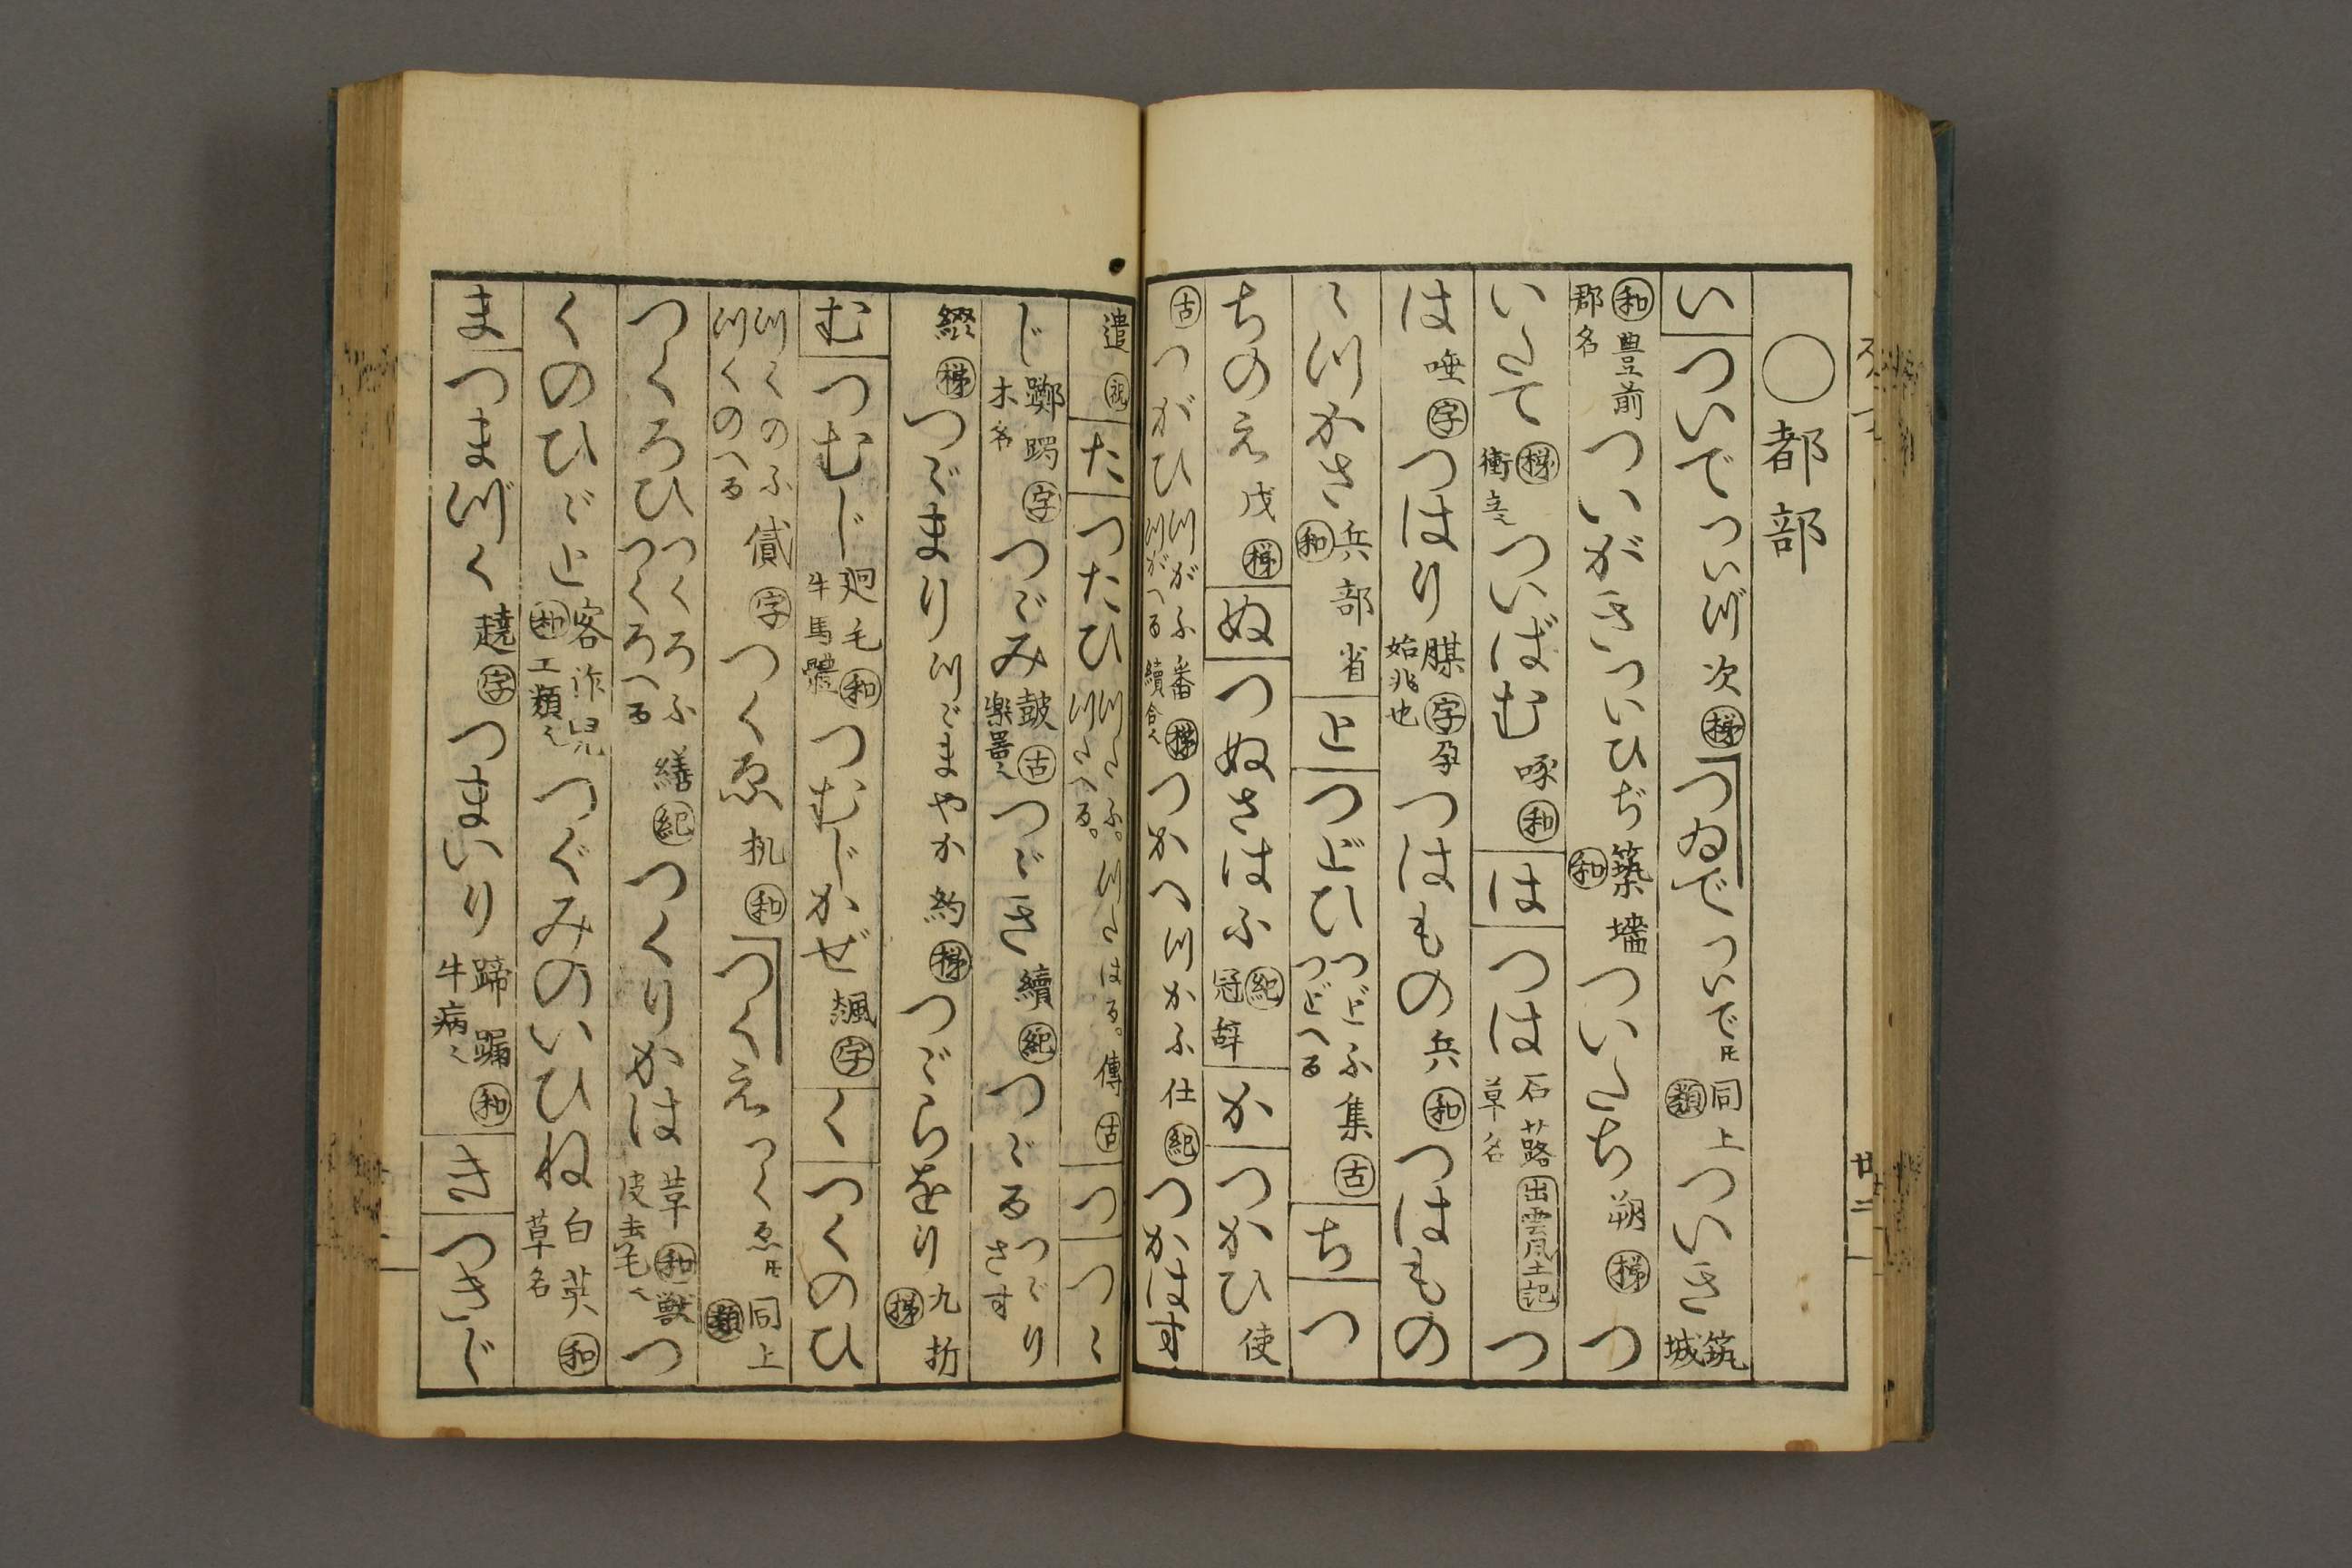 ○都部
い ついで ついづ 次 梯 つゐで ついで𪜈 同上 類 ついき 筑城
和 豊前郡名 ついがき ついひぢ 築墻 和 ついたち 朔 梯 つ
いたて 梯 衝立也 ついばむ 啄 和 は つは 石蕗 草名 出雲風土記 つ
は 唾 字 つはり 腜 字 孕始兆也 つはもの 兵 和 つはもの
〻づかさ 兵部省 和 と つどひ つどふ つどへる 集 古 ち つ
ちのえ 戊 梯 ぬ つぬさはふ 紀 冠辞 か つかひ 使
古 つがひ つがふ つがへる 番 梯 續合也 つかへ つかふ 仕 紀 つかはす
遣 祝 た つたひ つたふ。つたへる。つたはる。傳 古 つ つゝ
じ 躑躅 字 木名 つゞみ 鼓 古 楽器也 つゞき 續 紀 つゞる つゞり さす
綴 梯 つゞまり つゞまやか 約 梯 つゞらをり 九折 梯
む つむじ 廻毛 和 牛馬體 つむじかぜ 飄 字 く つくのひ
つくのふ つくのへる 償 字 つくゑ 机 和 つくえ つくゑ𪜈 同上 類
つくろひ つくろふ つくろへる 繕 紀 つくりかは 革 和 獣皮去毛也 つ
くのひゞと 客作児 和 工類也 つぐみのいひね 白英 和 草名
ま つまづく 趬 字 つまいり 蹄漏 和 牛病也 き つきじ
廿二